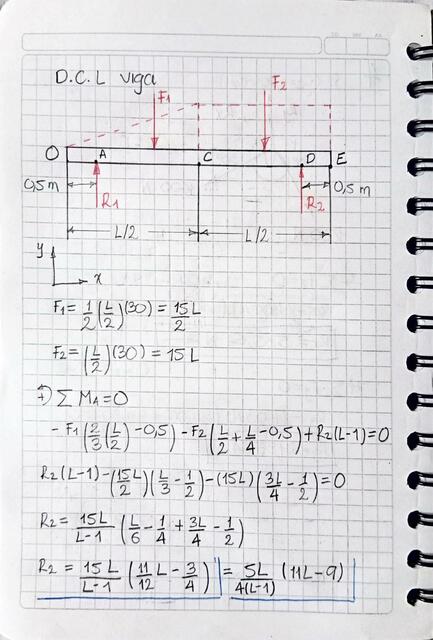 D.C.L viga
F1 F2
O A C D E
0,5m R1 R2 0,5m
L/2 L/2
y
x
F1 = 1/2 (L/2)(30) = 15L/2
F2 = (L/2)(30) = 15L
+) ∑ MA = 0
- F1 (2/3 (L/2) - 0,5) - F2 (L/2 + L/4 - 0,5) + R2 (L-1) = 0
R2 (L-1) - (15L/2)(L/3 - 1/2) - (15L)(3L/4 - 1/2) = 0
R2 = 15L/L-1 (L/6 - 1/4 + 3L/4 - 1/2)
R2 = 15L/L-1 (11/12 L - 3/4) = 5L/4(L-1) (11L - 9)